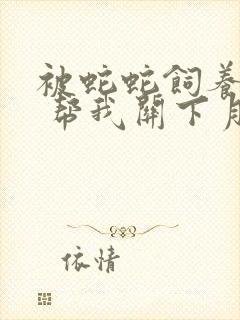 被蛇蛇飼養
幫我關下
依情